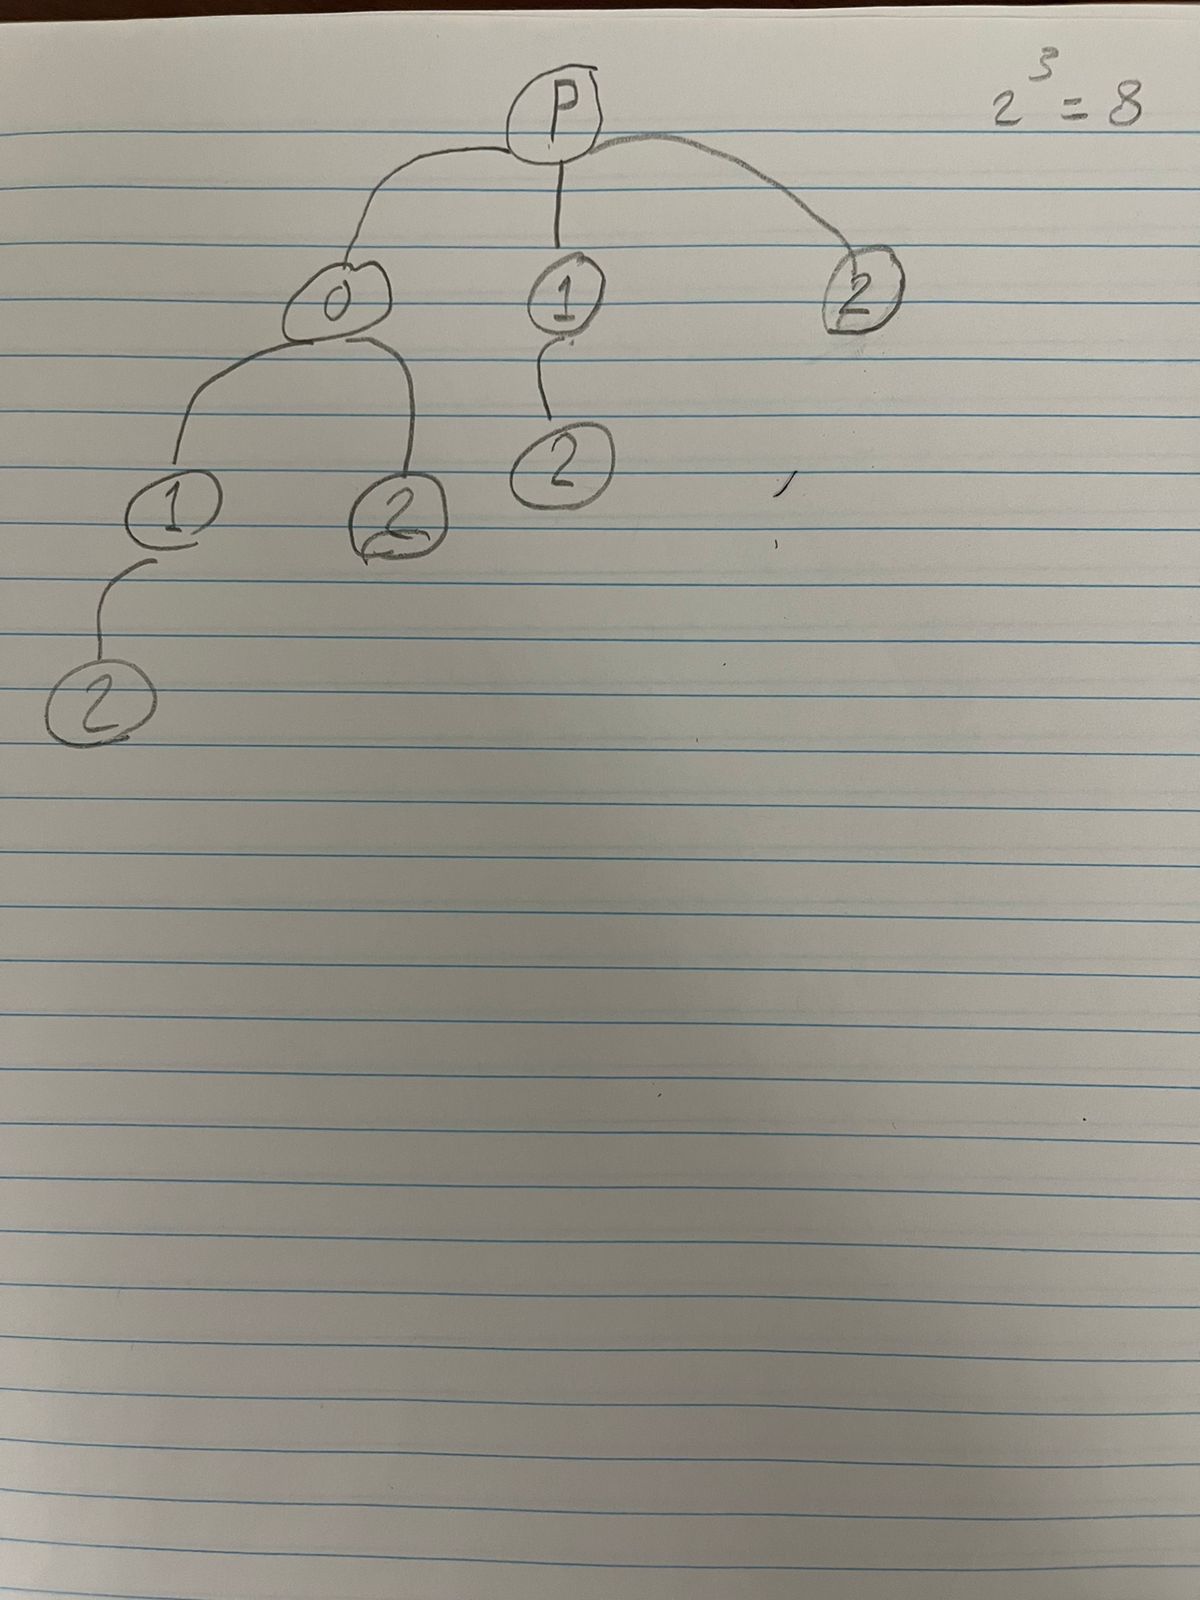 2³ = 8
P
0 1 2
2
1 2
2